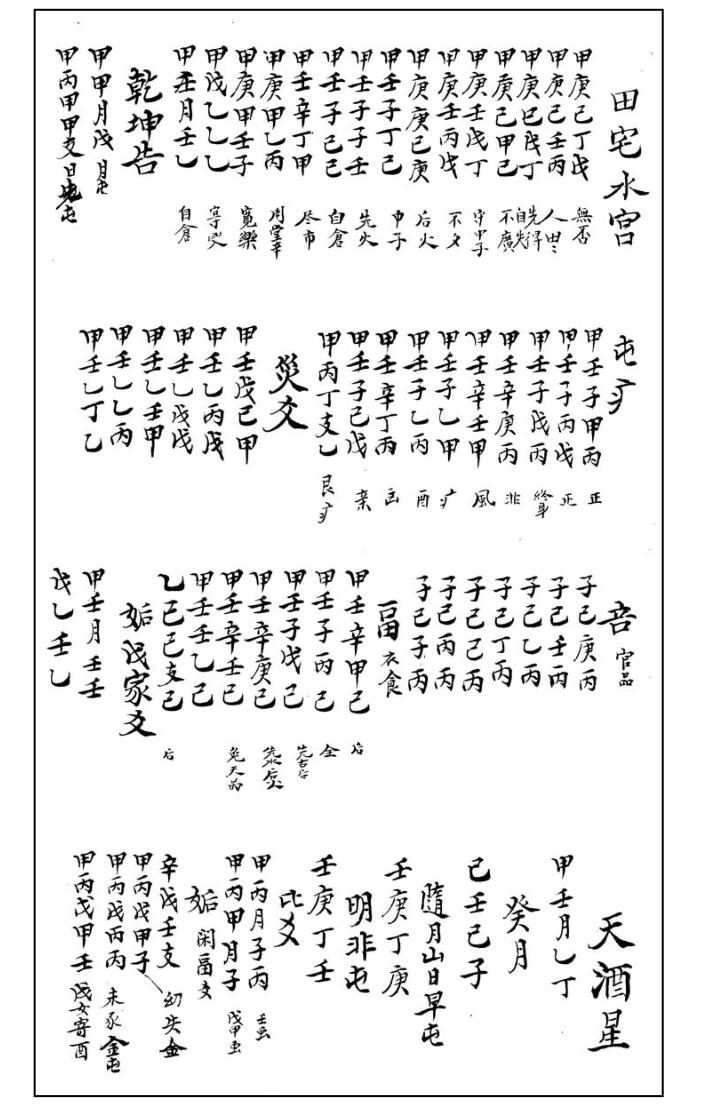 田宅水宫
甲庚己丁戊 無否
甲庚己壬丙
甲庚巳戊丁
甲庚己甲己 不廣
甲庚壬戊丁
甲庚壬丙戊
甲庚庚己庚 后火
甲壬子丁己 中子
甲壬子子壬 先火
甲壬子己己 自倉
甲壬辛丁甲 尽市
甲庚甲乙丙
甲庚甲壬子 寬樂
甲戊乙乙乙
甲壬月壬乙 自倉
乾坤告
甲甲月戊
甲丙甲甲爻
屯疒
甲壬子甲丙 正
甲壬子丙戊 正
甲壬子戊丙 終身
甲壬辛庚丙 非
甲壬辛壬甲 風
甲壬子乙甲 疒
甲壬子乙丙 酉
甲壬辛丁丙
甲壬子己戊 亲
甲丙丁支乙 艮疒
災爻
甲壬戊己甲
甲壬乙丙戊
甲壬乙戊戊
甲壬乙壬甲
甲壬乙乙丙
甲壬乙丁乙
官品
子己庚丙
子己壬丙
子己乙丙
子己丁丙
子己己丙
子己丙丙
子己子丙
畐 衣食
甲壬辛甲己 后
甲壬子丙己 全
甲壬子戊己
甲壬辛庚己
甲壬辛壬己
甲壬壬乙己
乙己己支己 后
姤 家爻
甲壬月壬壬
戊乙壬乙
天酒星
甲壬月乙丁
癸月
己壬己子
隨月山日早屯
壬庚丁庚
明非屯
壬庚丁壬
比爻
甲丙月子丙 壬虫
甲丙甲月子 戊甲虫
姤 闲畐爻
辛戊壬支
甲丙戊甲子 幼失金
甲丙戊丙丙
甲丙戊甲壬 戊女寄酉